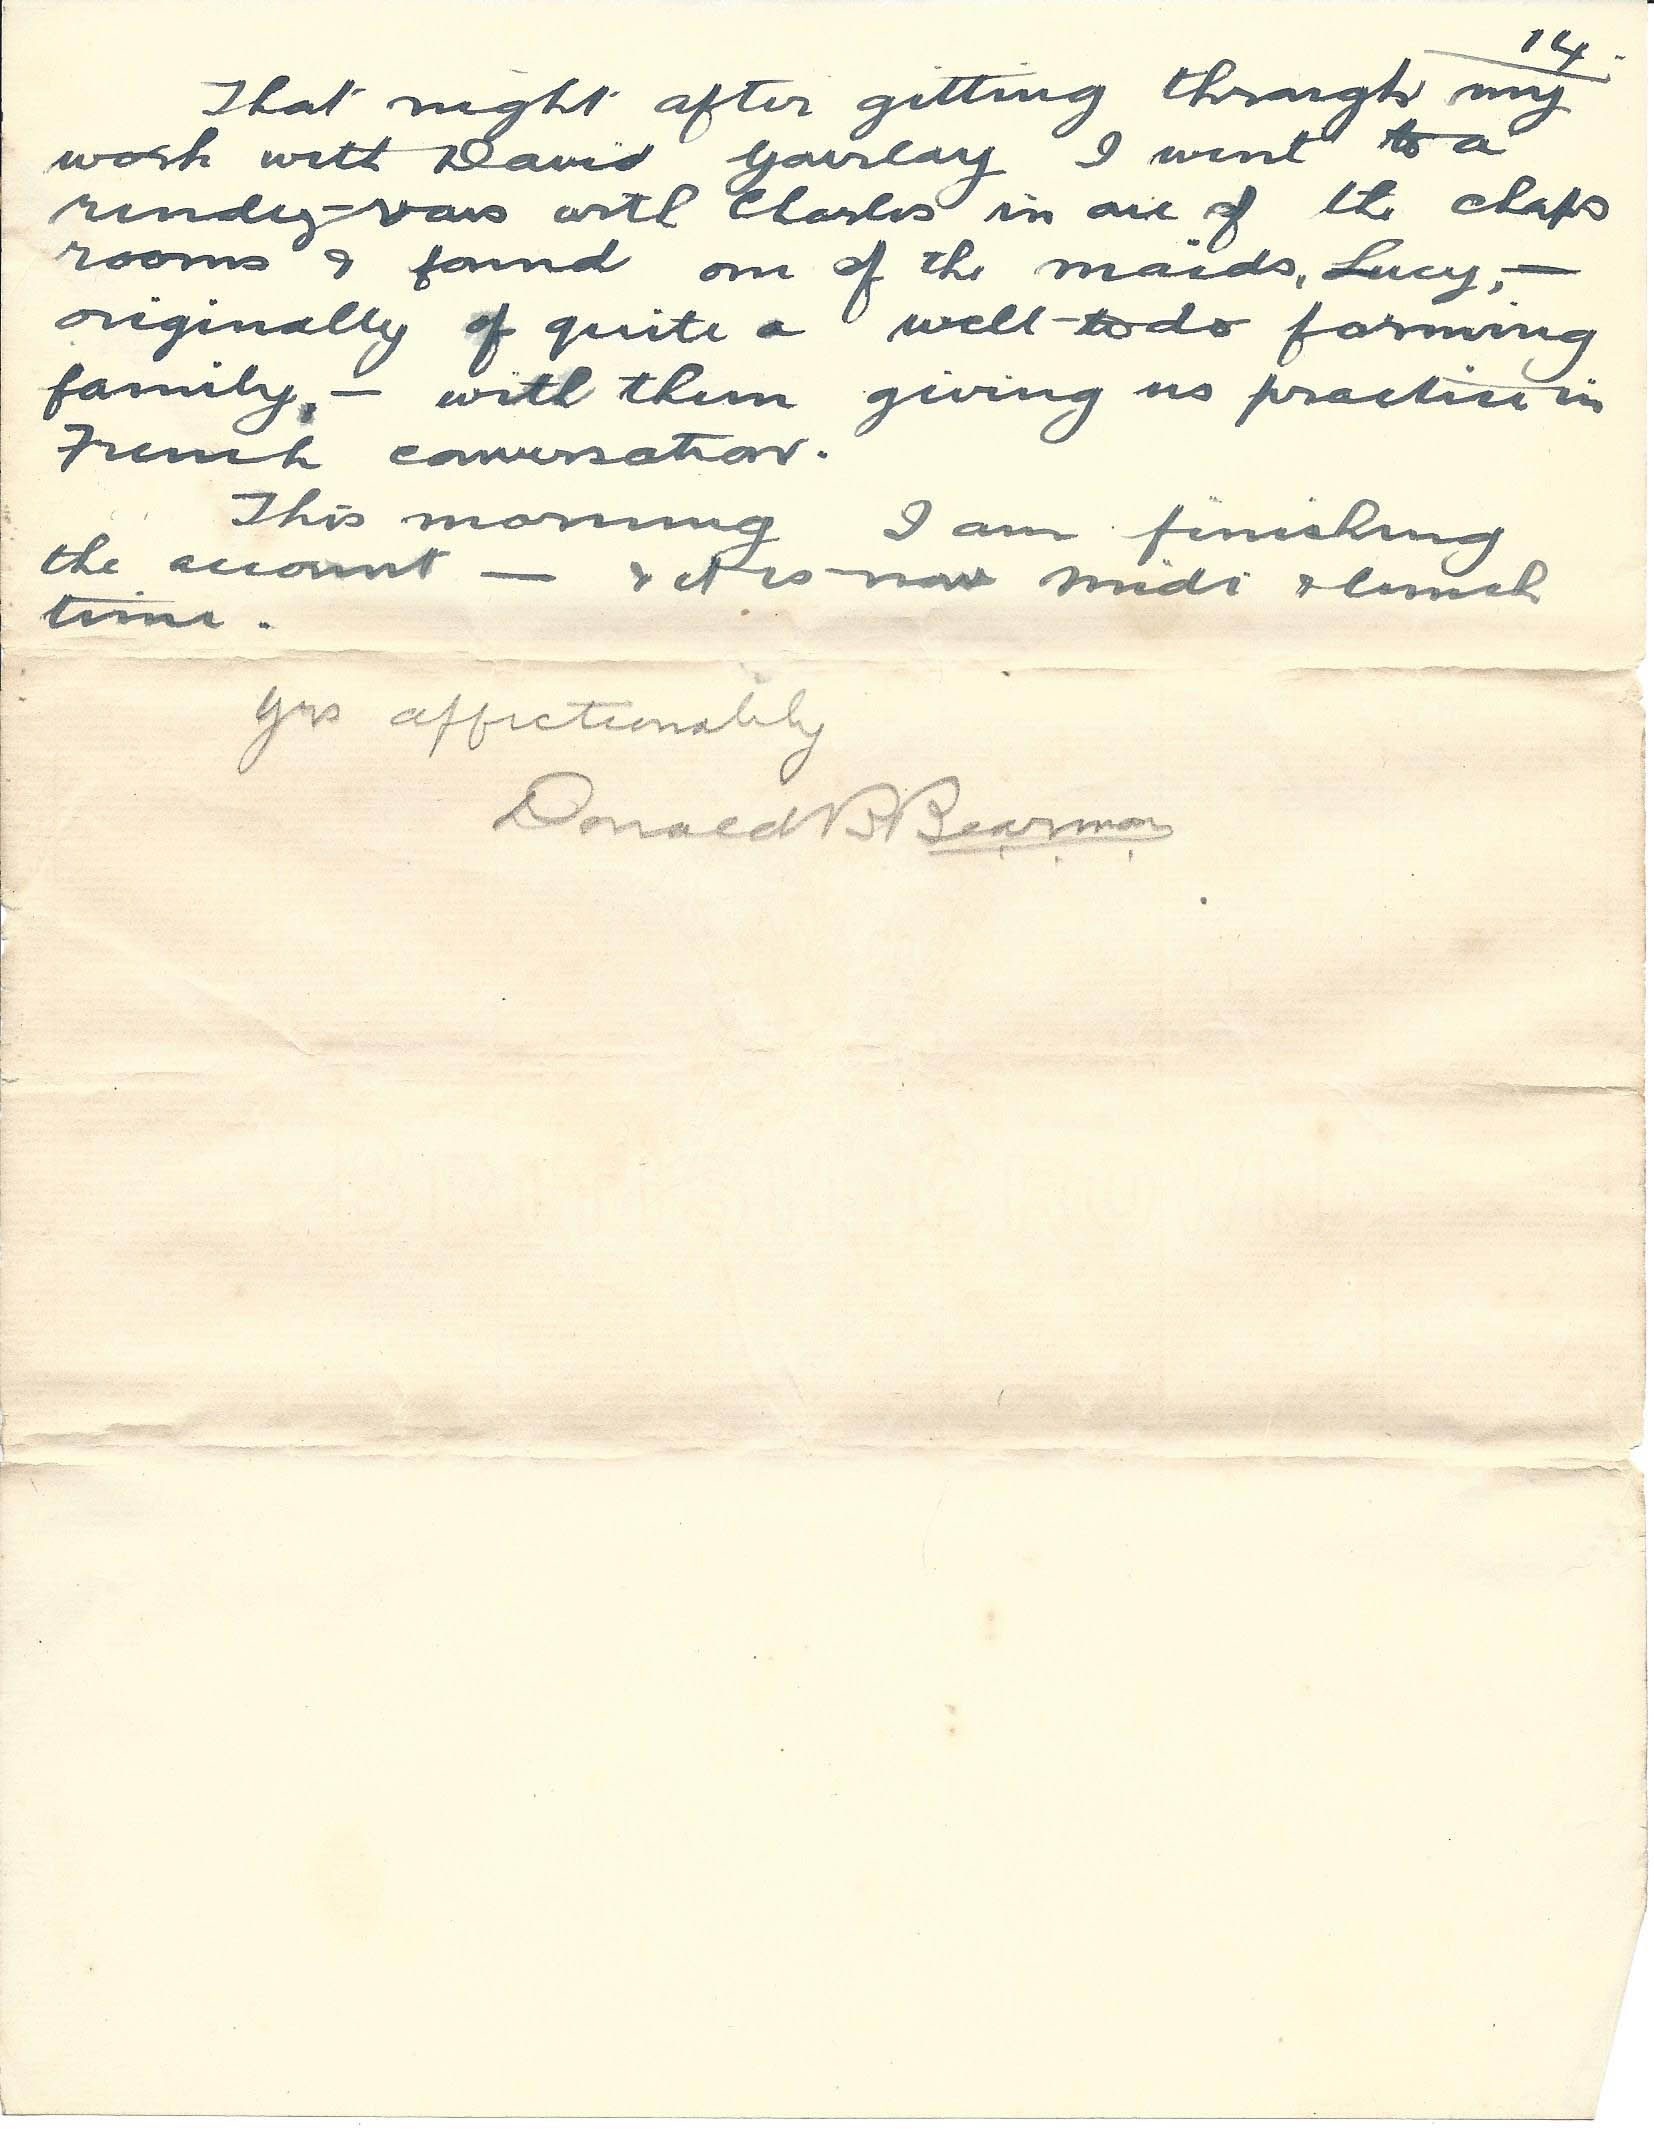 14.
That night after getting through my
work with David Gourlay I went to a
rendez-vous with Charles in one of the chaps
rooms & found one of the maids, Lucy, —
originally of quite a well-to do farming
family, — with them giving us practise in
French conversation.
This morning I am finishing
the account — & it is now midi & lunch
time.
Yrs affectionately
Donald B Bearman